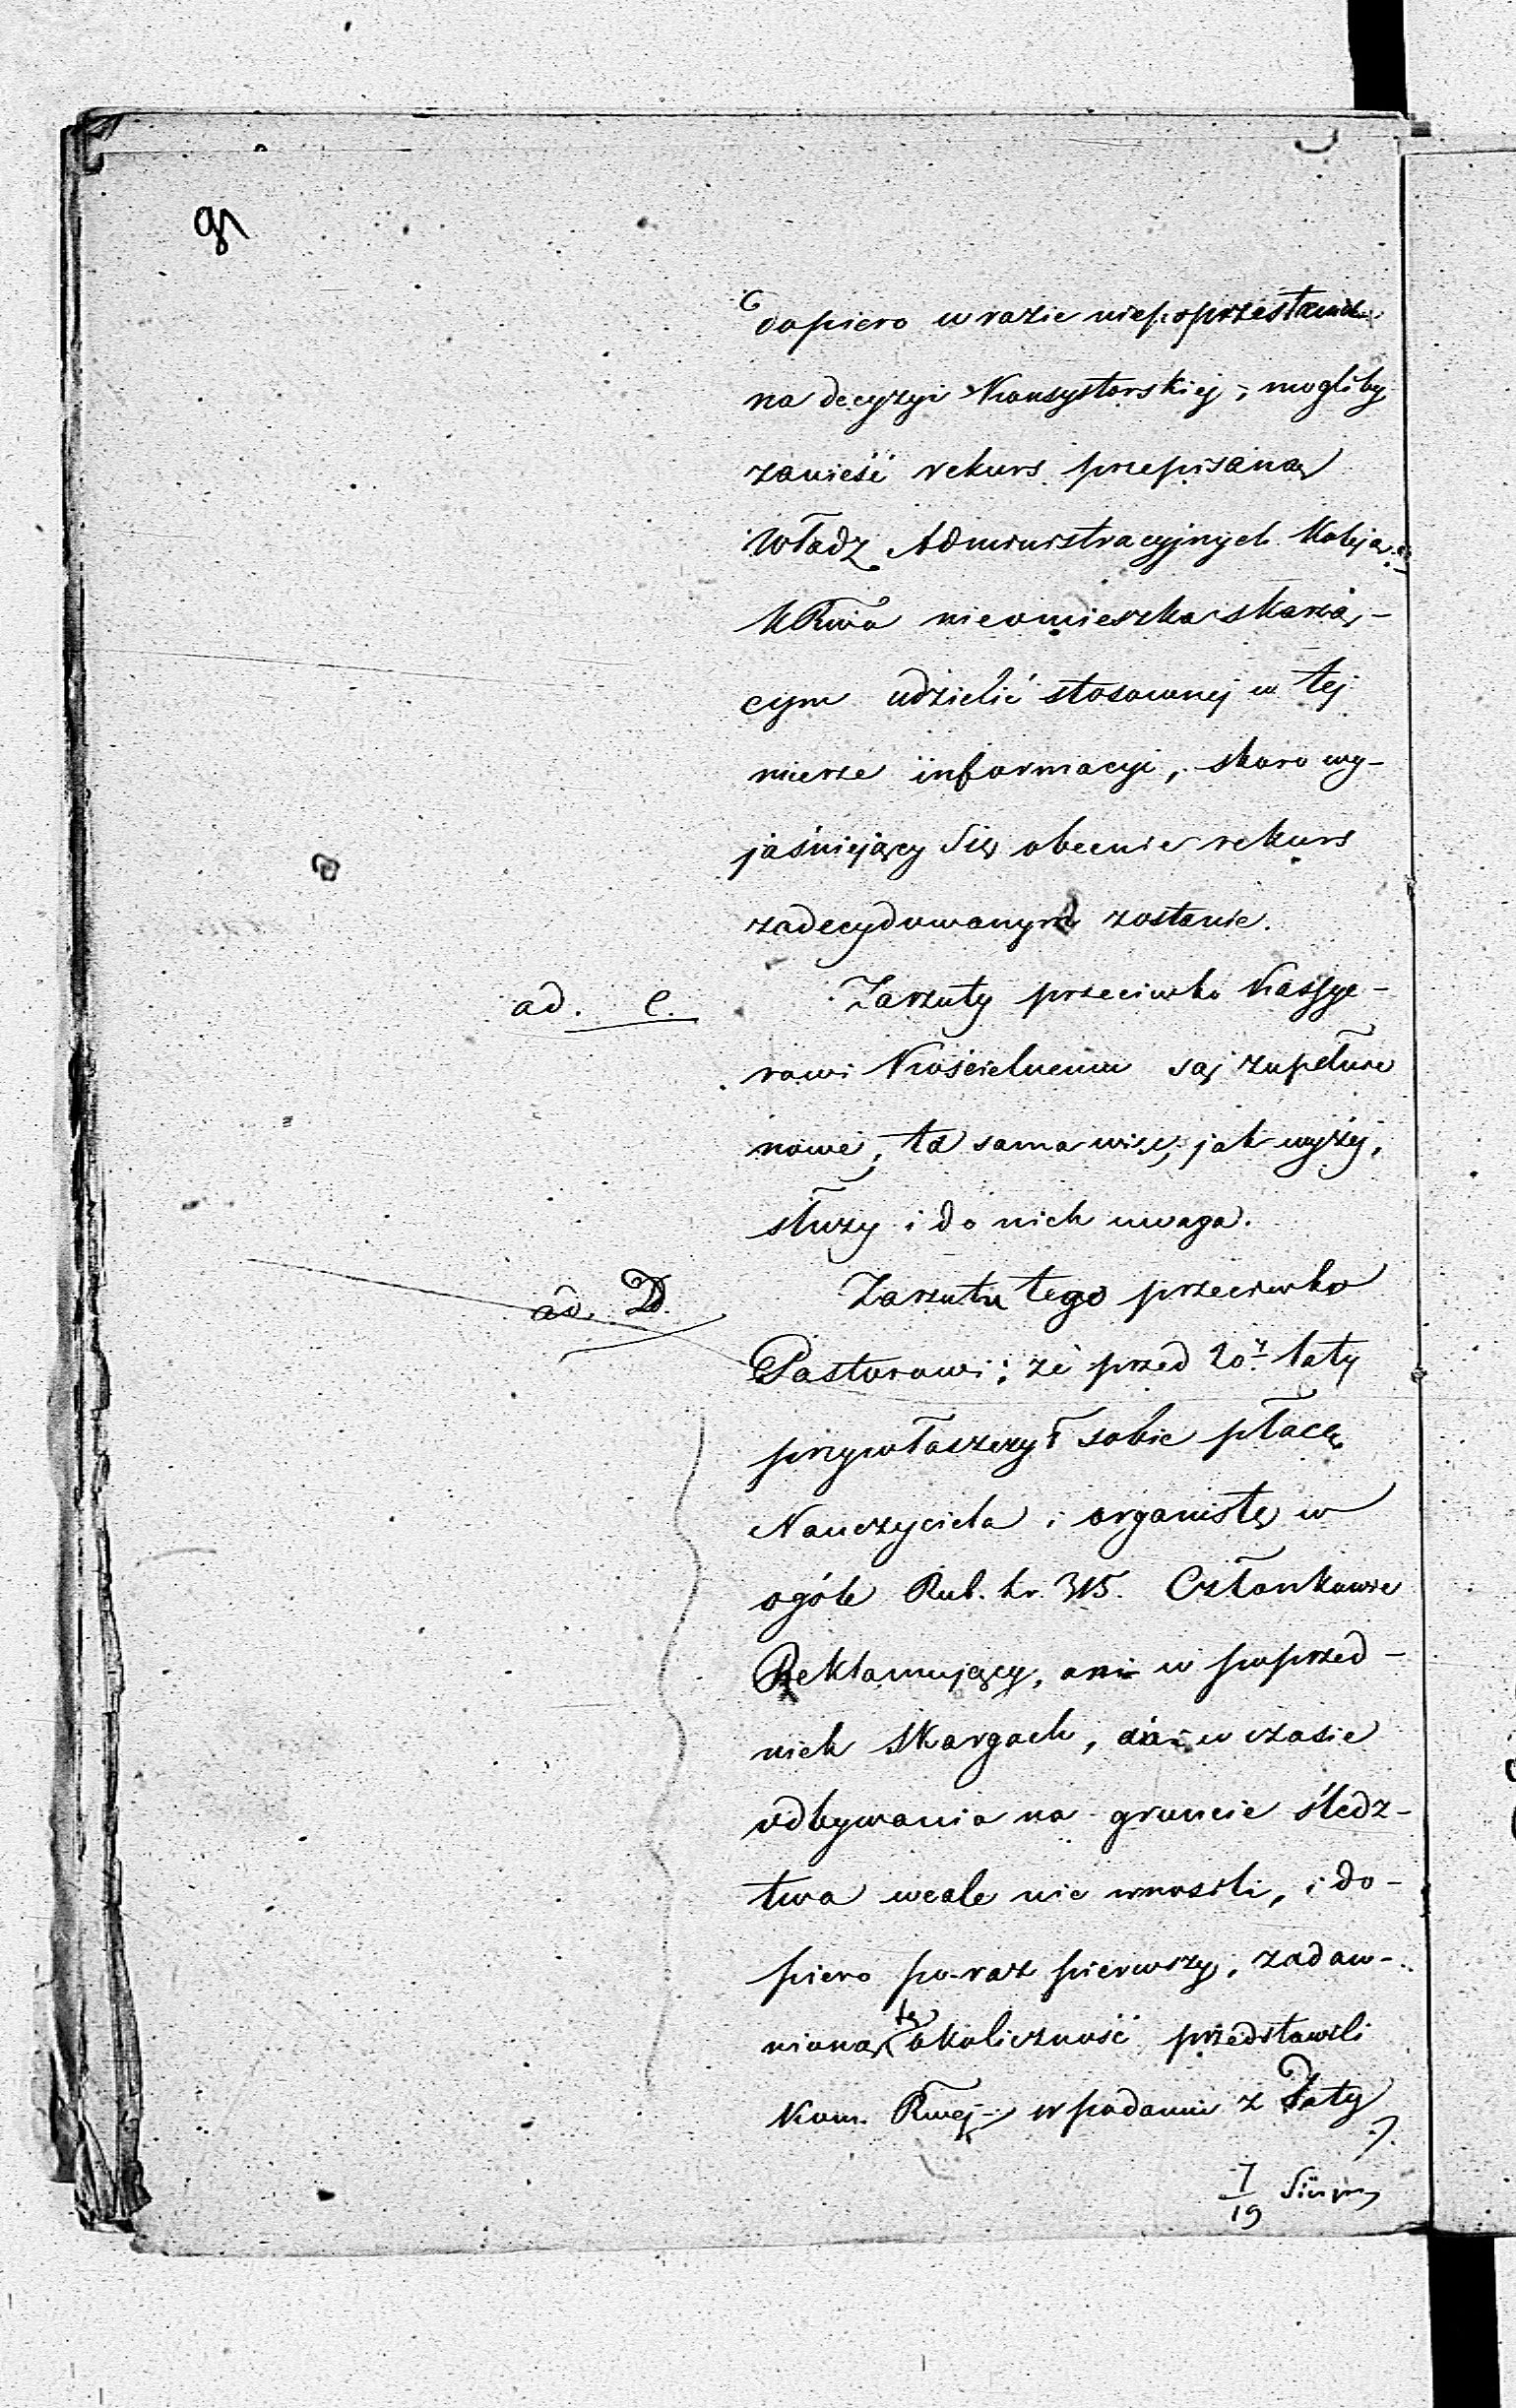 91
dopiero w razie niepoprzestania
na decyzyi Konsystorskiej, mogliby
zanieść rekurs przepisaną
Władz Administracyjnych Koleją.
KRwa nieomieszka skarżą-
cym udzielić stosownej w tej
mierze informacyi, skoro wy-
jaśniejący się obecnie rekurs
zadecydowanym zostanie.
ad. C. Zarzuty przeciwko Kassye-
rowi Kościelnemu są zupełnie
nowe, ta sama więc, jak wyżej,
służy i do nich uwaga.
ad. D. Zarzutu tego przeciwko
Pastorowi; że przed 20y laty
przywłaszczył sobie płacę
Nauczyciela i organisty w
ogóle Rub. sr. 315. Członkowie
Reklamujący, ani w poprzed-
nich skargach, ani w czasie
odbywania na gruncie śledz-
twa wcale nie wnosili, i do-
piero po raz pierwszy, zadaw-
nioną tę okoliczność przedstawili
Kom. Rwej w podaniu z daty
7/19 Sierpn